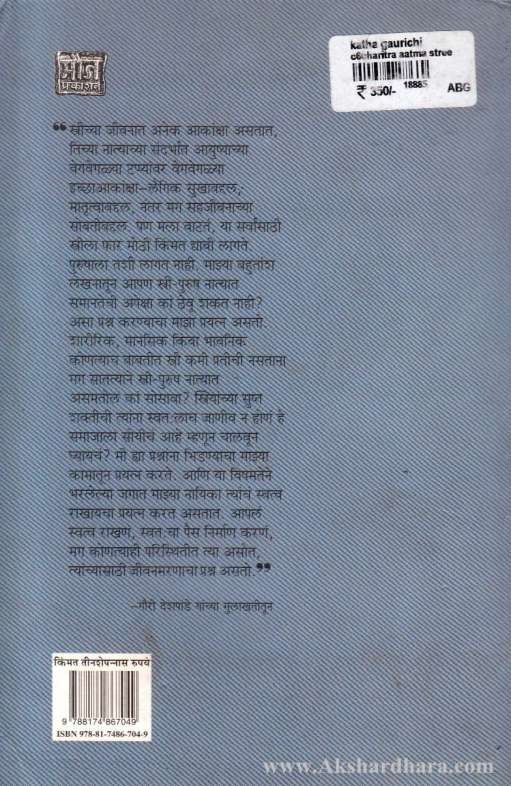 मौज
प्रकाशन
katha gaurichi
c6charitra aatma stree
18885
₹ 350/- ABG
❝ स्त्रीच्या जीवनात अनेक आकांक्षा असतात,
तिच्या नात्याच्या संदर्भात आयुष्याच्या
वेगवेगळ्या टप्प्यांवर वेगवेगळ्या
इच्छाआकांक्षा–लैंगिक सुखाबद्दल,
मातृत्वाबद्दल, नंतर मग सहजीवनाच्या
सोबतीबद्दल. पण मला वाटतं, या सर्वांसाठी
स्त्रीला फार मोठी किंमत द्यावी लागते.
पुरुषाला तशी लागत नाही. माझ्या बहुतांश
लेखनातून आपण स्त्री-पुरुष नात्यात
समानतेची अपेक्षा का ठेवू शकत नाही?
असा प्रश्न करण्याचा माझा प्रयत्न असतो.
शारीरिक, मानसिक किंवा भावनिक
कोणत्याच बाबतीत स्त्री कमी प्रतीची नसताना
मग सातत्याने स्त्री-पुरुष नात्यात
असमतोल का सोसावा? स्त्रियांच्या सुप्त
शक्तीची त्यांना स्वतःलाच जाणीव न होणं हे
समाजाला सोयीचं आहे म्हणून चालवून
घ्यायचं? मी ह्या प्रश्नांना भिडण्याचा माझ्या
कामातून प्रयत्न करते. आणि या विषमतेने
भरलेल्या जगात माझ्या नायिका त्यांचं स्वत्व
राखायचा प्रयत्न करत असतात. आपलं
स्वत्व राखणं, स्वतःचा पैस निर्माण करणं,
मग कोणत्याही परिस्थितीत त्या असोत,
त्यांच्यासाठी जीवनमरणाचा प्रश्न असतो.❞
–गौरी देशपांडे यांच्या मुलाखतीतून
किंमत तीनशेपन्नास रुपये
9 788174 867049
ISBN 978-81-7486-704-9
www.Akshardhara.com